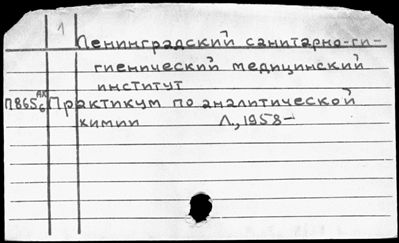 1
Ленинградский санитарно-ги-
гиенический медицинский
институт
АК
П865 Практикум по аналитической
6
химии Л., 1958-